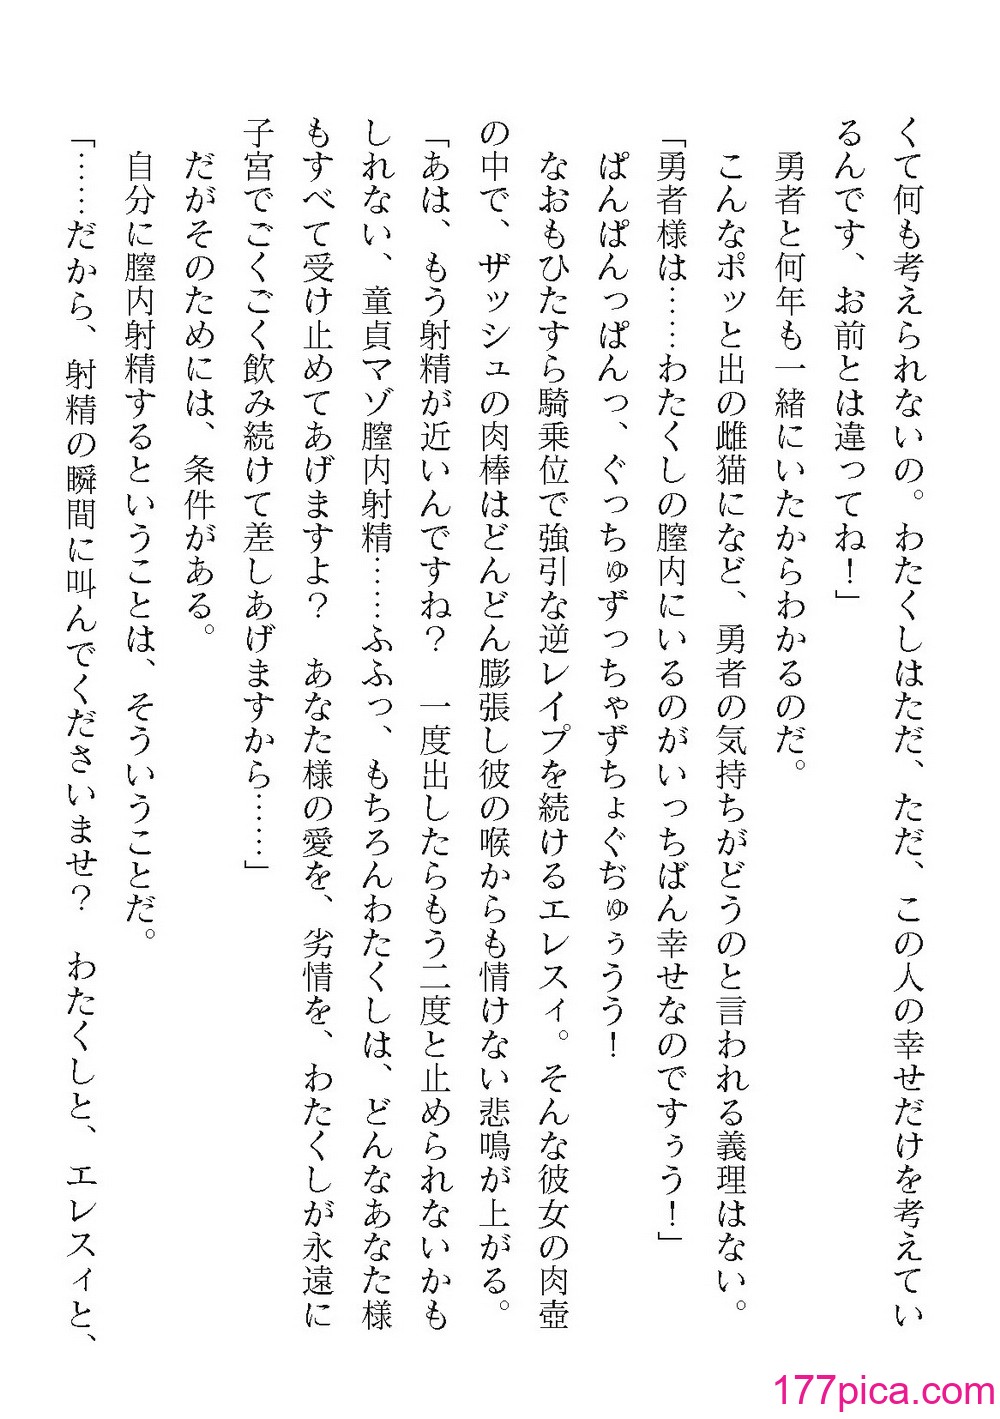 くて何も考えられないの。わたくしはただ、ただ、この人の幸せだけを考えてい
るんです、お前とは違ってね！」
　勇者と何年も一緒にいたからわかるのだ。
　こんなポッと出の雌猫になど、勇者の気持ちがどうのと言われる義理はない。
「勇者様は……わたくしの膣内にいるのがいっちばん幸せなのですぅう！」
　ぱんぱんっぱんっ、ぐっちゅずっちゃずちょぐぢゅぅうう！
　なおもひたすら騎乗位で強引な逆レイプを続けるエレスィ。そんな彼女の肉壺
の中で、ザッシュの肉棒はどんどん膨張し彼の喉からも情けない悲鳴が上がる。
「あは、もう射精が近いんですね？　一度出したらもう二度と止められないかも
しれない、童貞マゾ膣内射精……ふふっ、もちろんわたくしは、どんなあなた様
もすべて受け止めてあげますよ？　あなた様の愛を、劣情を、わたくしが永遠に
子宮でごくごく飲み続けて差しあげますから……」
　だがそのためには、条件がある。
　自分に膣内射精するということは、そういうことだ。
「……だから、射精の瞬間に叫んでくださいませ？　わたくしと、エレスィと、
177pica.com